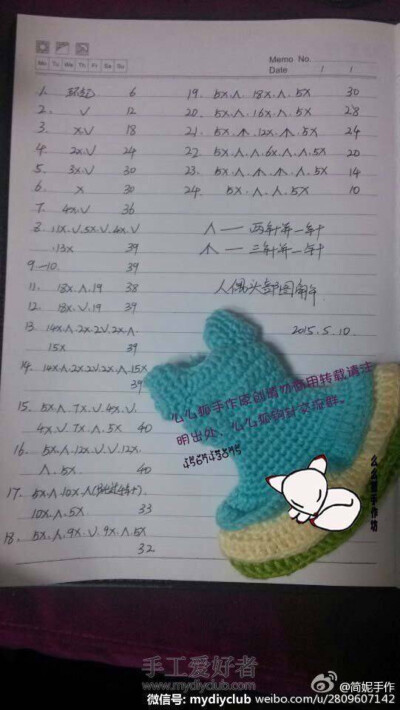 Memo No.
Mo Tu We Th Fr Sa Su
Date / /
1. 环起 6
2. V 12
3. X.V 18
4. 2X.V 24
5. 3X.V 30
6. X 30
7. 4X.V 36
8. 11X.V.5X.V.4X.V
.13X 39
9.—10. 39
11. 18X.Λ.19 38
12. 18X.V.19 39
13. 14X.Λ.2X.2V.2X.Λ
15X 39
14. 14X.Λ.2X.2V.2X.Λ.15X
39
15. 5X.Λ.7X.V.4X.V.
4X.V.7X.Λ.5X 40
16. 5X.Λ.12X.V.V.12X.
Λ.5X 40
17. 5X.Λ.10X.Λ
10X.Λ.5X 33
18. 5X.Λ.9X.V.9X.Λ.5X
32
19. 5X.Λ.18X.Λ.5X 30
20. 5X.Λ.16X.Λ.5X 28
21. 5X.⩚.12X.⩚.5X 24
22. 5X.Λ.Λ.6X.Λ.Λ.5X 20
23. 5X.⩚.Λ.Λ.⩚.5X 14
24. 5X.Λ.Λ.5X 10
Λ —— 两针并一针
⩚ —— 三针并一针
人偶头部图解
2015.5.10.
么么狐手作家创请勿商用转载请注
明出处、么么狐钩针交流群。
么么狐手作坊
手工爱好者
www.mydiyclub.com
@简妮手作
微信号: mydiyclub weibo.com/u/2809607142